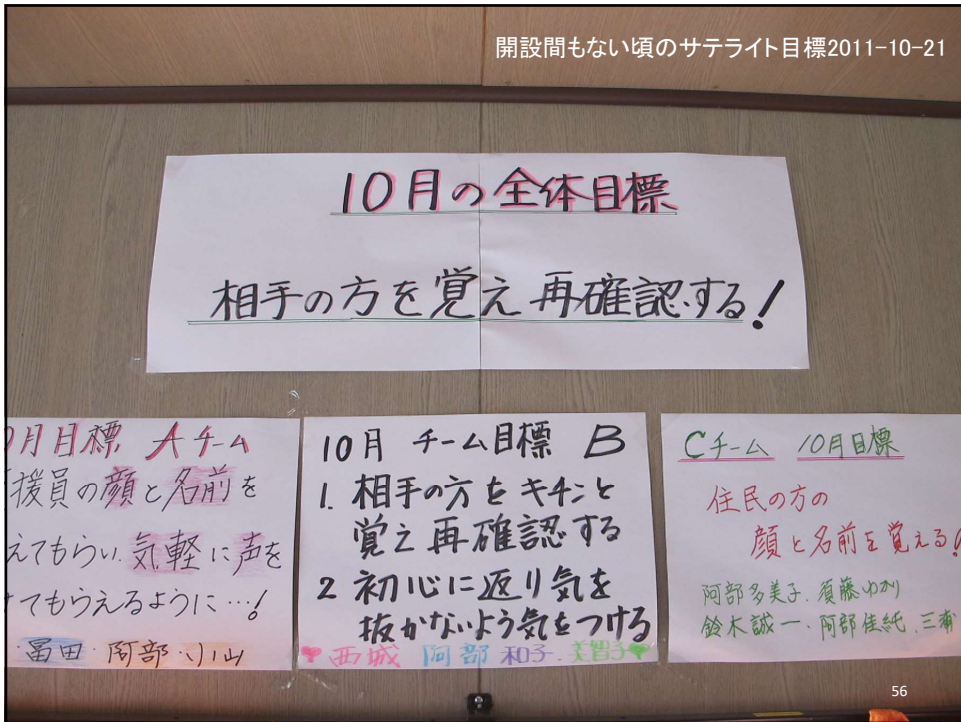 開設間もない頃のサテライト目標2011-10-21
10月の全体目標
相手の方を覚え再確認する!
月目標 Aチーム
援員の顔と名前を
えてもらい、気軽に声を
てもらえるように…!
冨田・阿部・小山
10月 チーム目標 B
1. 相手の方をキチンと
覚え再確認する
2 初心に返り気を
抜かないよう気をつける
西城 阿部 和子.美智子
Cチーム 10月目標
住民の方の
顔と名前を覚える!
阿部多美子.須藤ゆかり
鈴木誠一.阿部佳純.三浦
56